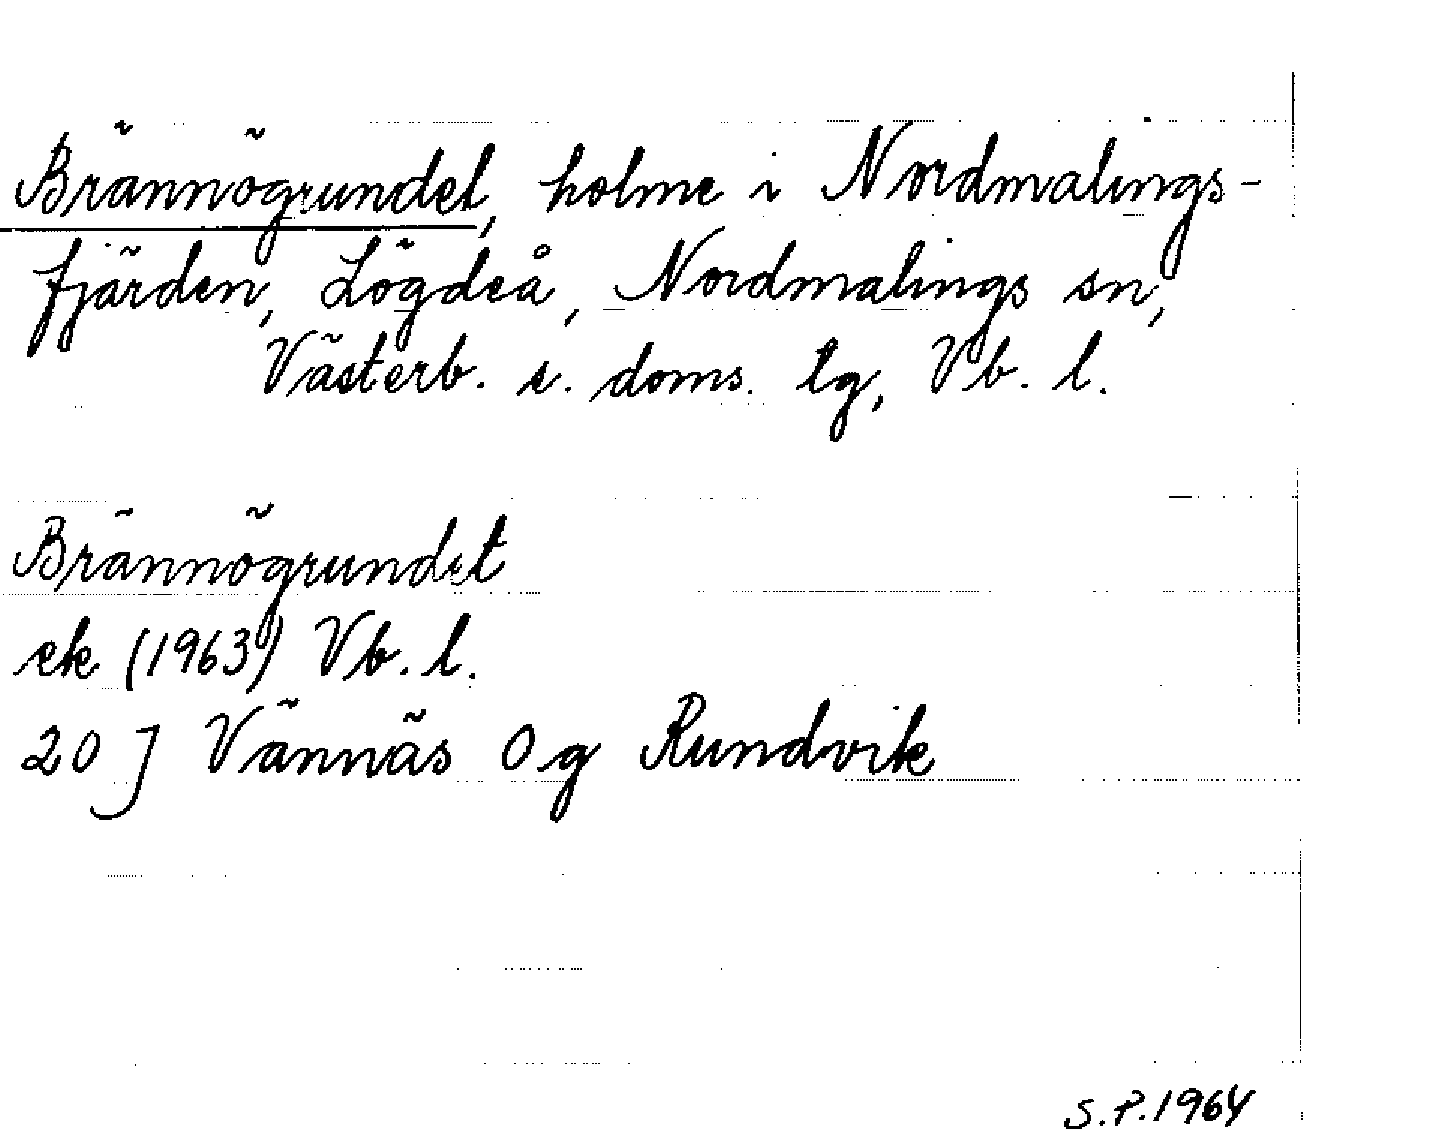 Brännögrundet, holme i Nordmalings-
fjärden, Lögdeå, Nordmalings sn,
Västerb. s. doms. lg, Vb. l.
Brännögrundet
ek (1963) Vb. l.
20 J Vännäs 0g Rundvik
S.P. 1964